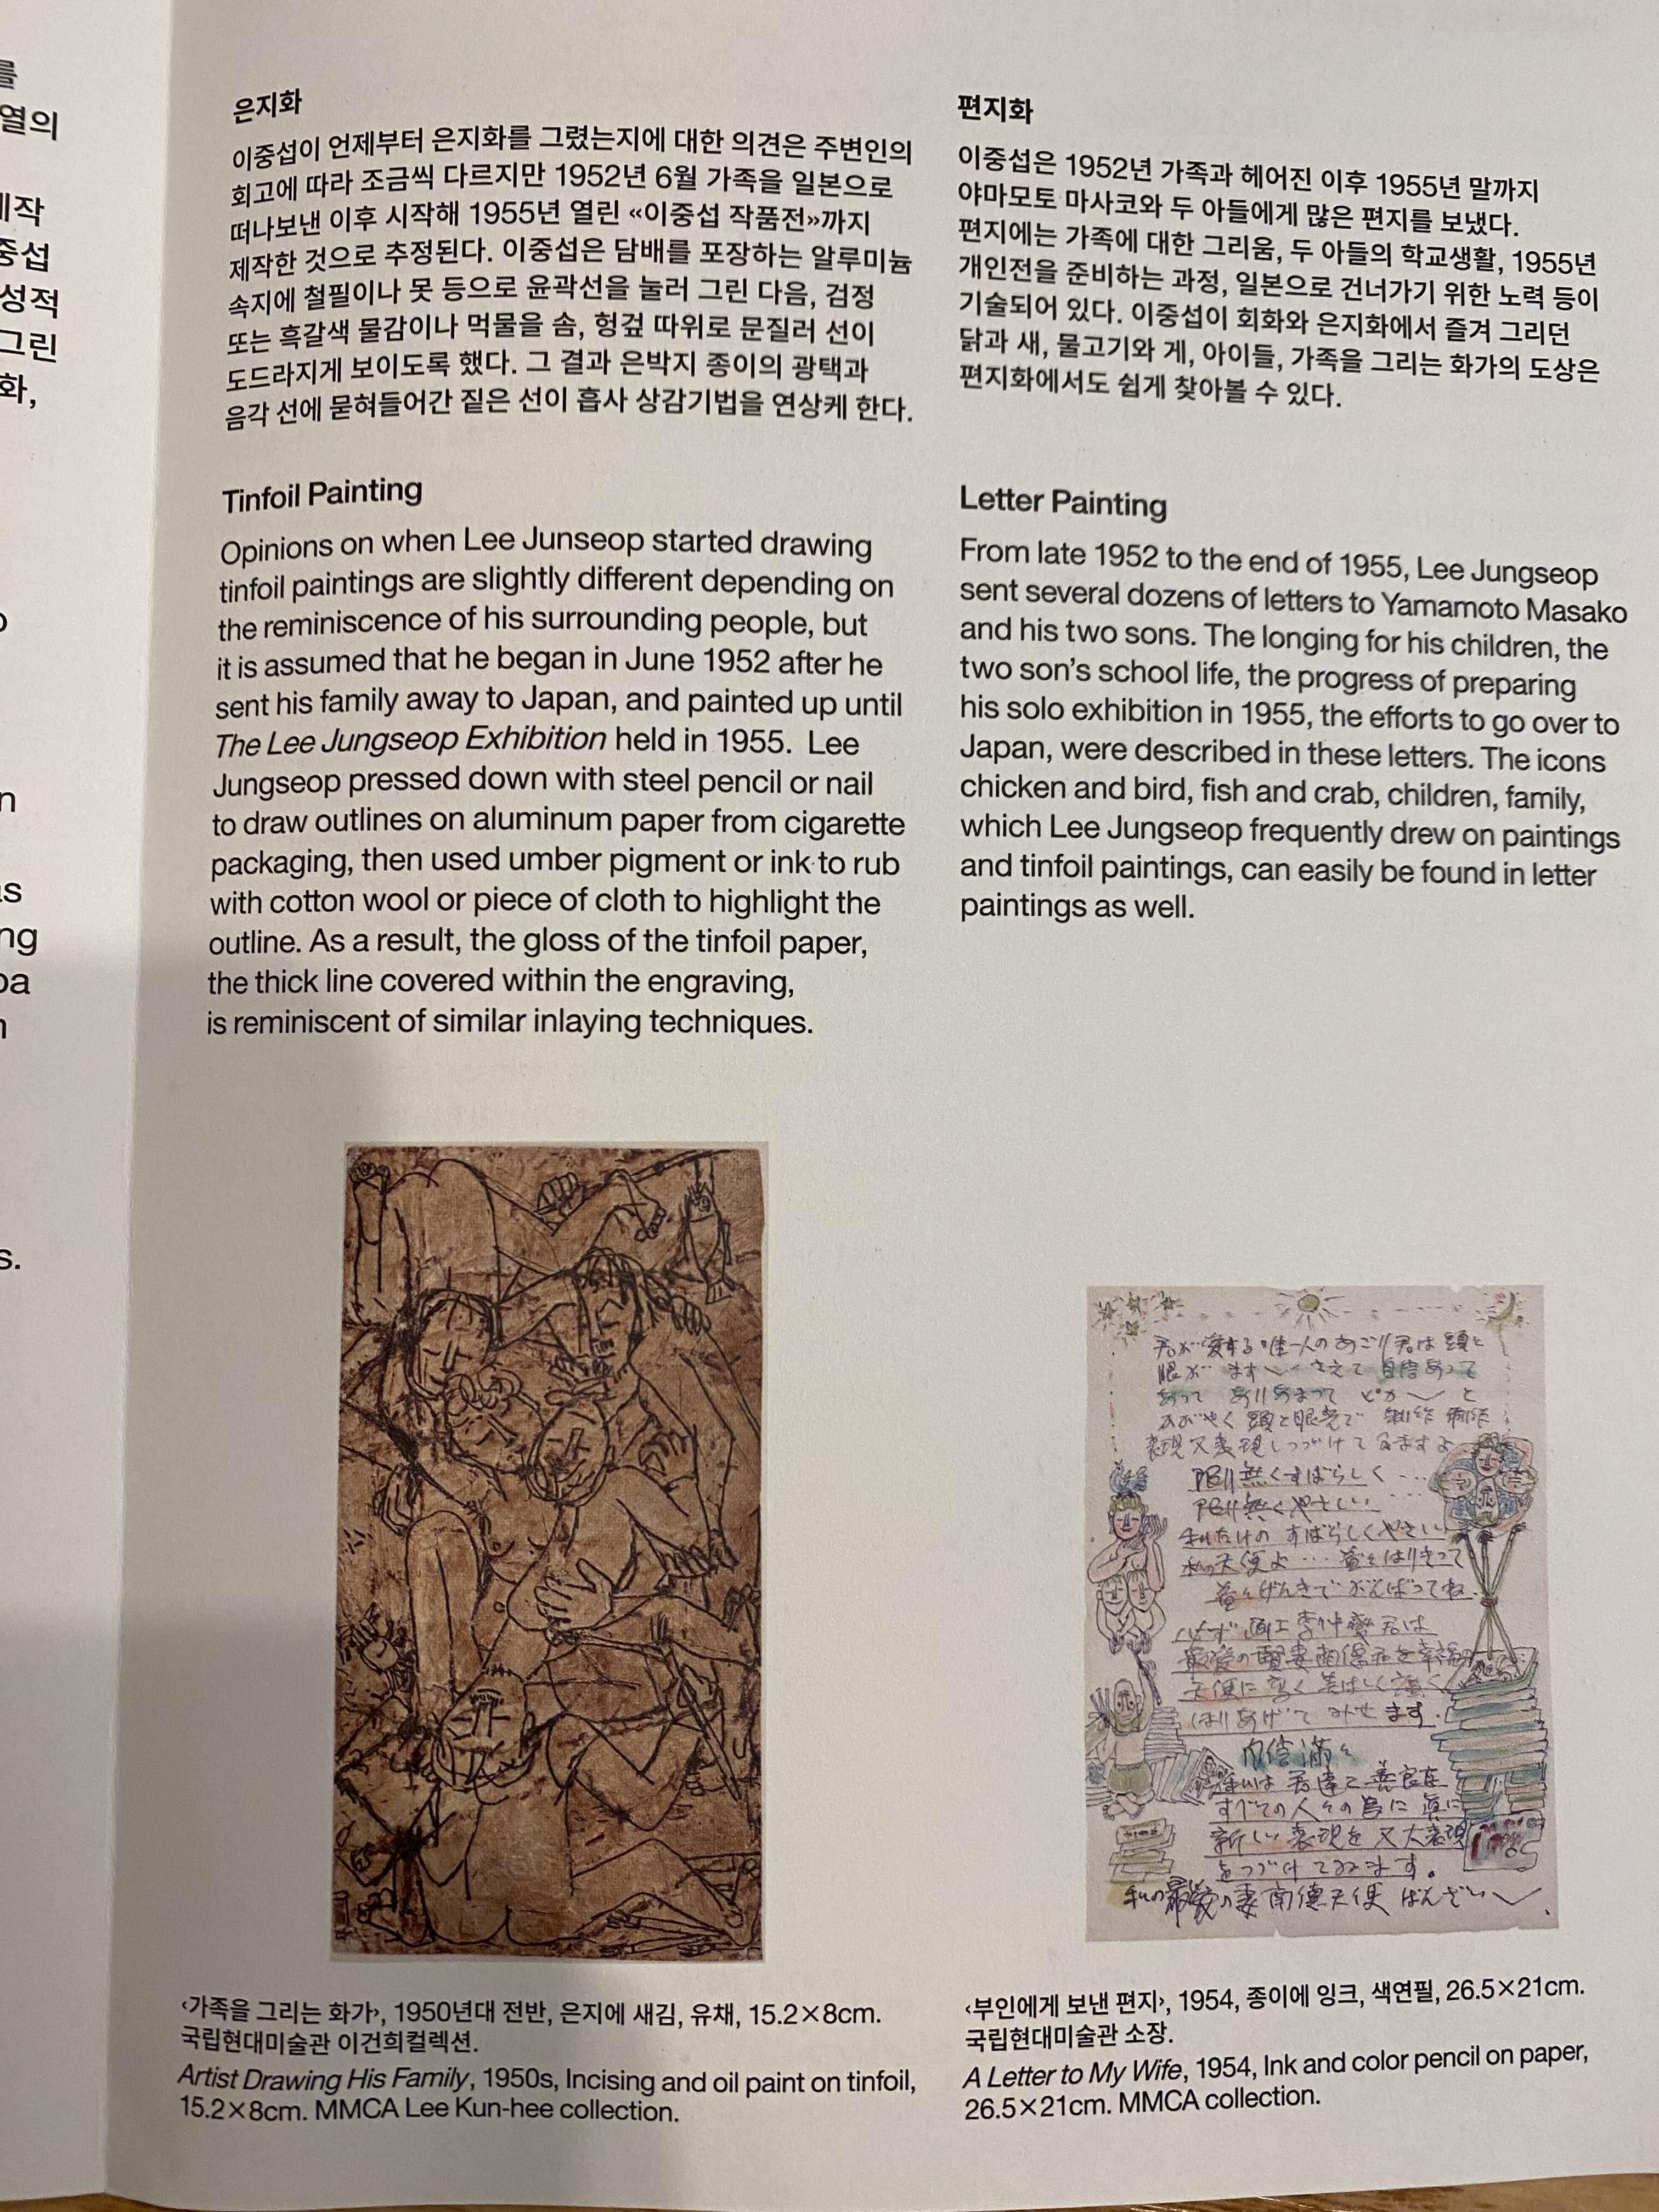 를
열의
제작
중섭
성적
그린
화,
n
as
ng
pa
n
s.
은지화
이중섭이 언제부터 은지화를 그렸는지에 대한 의견은 주변인의
회고에 따라 조금씩 다르지만 1952년 6월 가족을 일본으로
떠나보낸 이후 시작해 1955년 열린 «이중섭 작품전»까지
제작한 것으로 추정된다. 이중섭은 담배를 포장하는 알루미늄
속지에 철필이나 못 등으로 윤곽선을 눌러 그린 다음, 검정
또는 흑갈색 물감이나 먹물을 솜, 헝겊 따위로 문질러 선이
도드라지게 보이도록 했다. 그 결과 은박지 종이의 광택과
음각 선에 묻혀들어간 짙은 선이 흡사 상감기법을 연상케 한다.
Tinfoil Painting
Opinions on when Lee Junseop started drawing
tinfoil paintings are slightly different depending on
the reminiscence of his surrounding people, but
it is assumed that he began in June 1952 after he
sent his family away to Japan, and painted up until
The Lee Jungseop Exhibition held in 1955. Lee
Jungseop pressed down with steel pencil or nail
to draw outlines on aluminum paper from cigarette
packaging, then used umber pigment or ink to rub
with cotton wool or piece of cloth to highlight the
outline. As a result, the gloss of the tinfoil paper,
the thick line covered within the engraving,
is reminiscent of similar inlaying techniques.
‹가족을 그리는 화가›, 1950년대 전반, 은지에 새김, 유채, 15.2×8cm.
국립현대미술관 이건희컬렉션.
Artist Drawing His Family, 1950s, Incising and oil paint on tinfoil,
15.2×8cm. MMCA Lee Kun-hee collection.
편지화
이중섭은 1952년 가족과 헤어진 이후 1955년 말까지
야마모토 마사코와 두 아들에게 많은 편지를 보냈다.
편지에는 가족에 대한 그리움, 두 아들의 학교생활, 1955년
개인전을 준비하는 과정, 일본으로 건너가기 위한 노력 등이
기술되어 있다. 이중섭이 회화와 은지화에서 즐겨 그리던
닭과 새, 물고기와 게, 아이들, 가족을 그리는 화가의 도상은
편지화에서도 쉽게 찾아볼 수 있다.
Letter Painting
From late 1952 to the end of 1955, Lee Jungseop
sent several dozens of letters to Yamamoto Masako
and his two sons. The longing for his children, the
two son's school life, the progress of preparing
his solo exhibition in 1955, the efforts to go over to
Japan, were described in these letters. The icons
chicken and bird, fish and crab, children, family,
which Lee Jungseop frequently drew on paintings
and tinfoil paintings, can easily be found in letter
paintings as well.
君が愛する唯一人のあごり君は頭と
眼が ます さえて 自信あって
あって あり あまって ピカ と
かがやく 頭と眼光で 制作 制作
表現又表現しつづけて ゐますよ
限り無くすばらしく
限り無くやさしい
私だけの すばらしくやさしい
私の天使よ はりきって
げんきで がんばってね
必ず 画工 李仲燮君は
最愛の賢妻南徳君を幸福の
天使に 美しく
はりあげて みせ ます.
自信満々
私は 君達と 善良な
すべての人々の為に 真に
新しい 表現を 又 大表現
をつづけ てゐます。
私の最愛の妻南徳天使 ばんざい
‹부인에게 보낸 편지›, 1954, 종이에 잉크, 색연필, 26.5×21cm.
국립현대미술관 소장.
A Letter to My Wife, 1954, Ink and color pencil on paper,
26.5×21cm. MMCA collection.